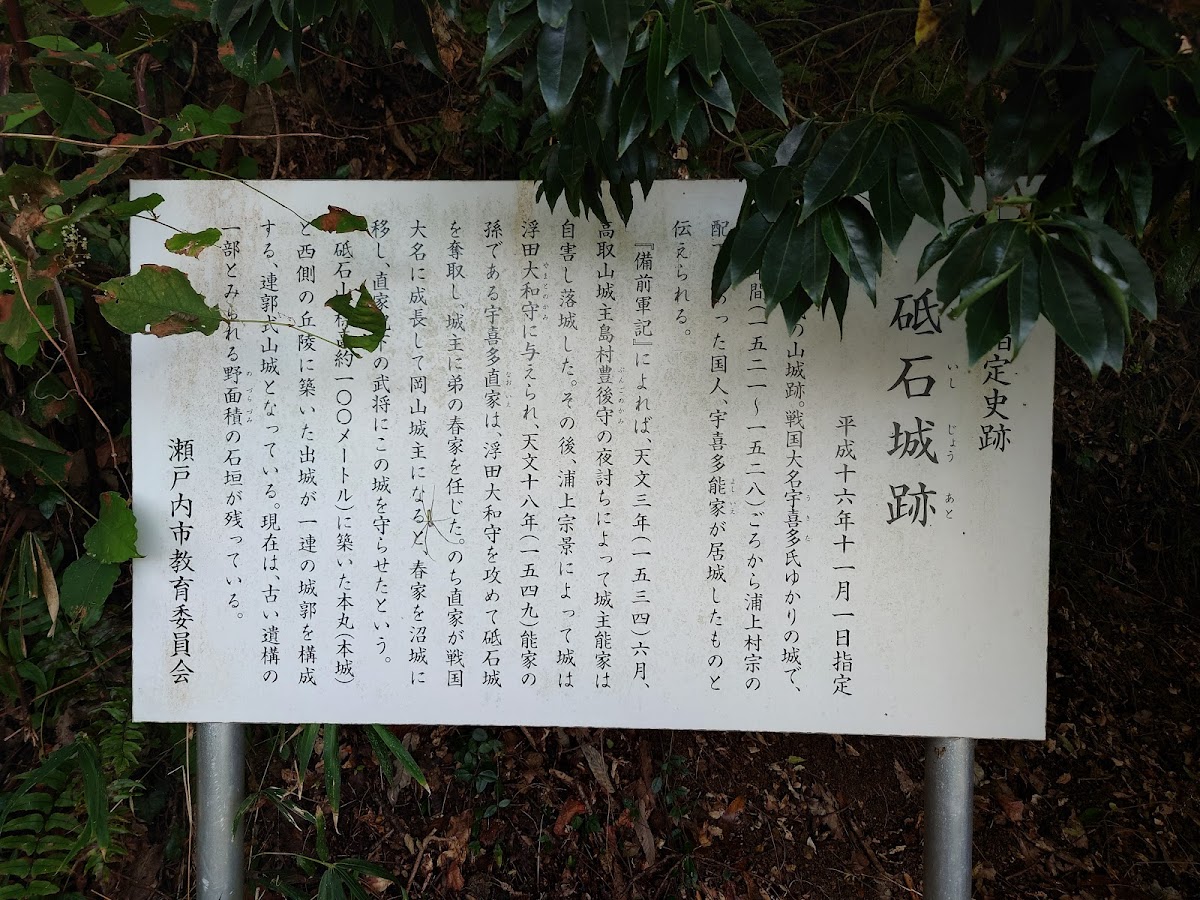 指定史跡
砥石城跡
いし じょう あと
平成十六年十一月一日指定
の山城跡。戦国大名宇喜多氏ゆかりの城で、
間(一五二一〜一五二八)ごろから浦上村宗の
配 った国人、宇喜多能家が居城したものと
伝えられる。
『備前軍記』によれば、天文三年(一五三四)六月、
高取山城主島村豊後守の夜討ちによって城主能家は
自害し落城した。その後、浦上宗景によって城は
浮田大和守に与えられ、天文十八年(一五四九)能家の
孫である宇喜多直家は、浮田大和守を攻めて砥石城
を奪取し、城主に弟の春家を任じた。のち直家が戦国
大名に成長して岡山城主になると、春家を沼城に
移し、直家 下の武将にこの城を守らせたという。
砥石山 標高約一〇〇メートル)に築いた本丸(本城)
と西側の丘陵に築いた出城が一連の城郭を構成
する、連郭式山城となっている。現在は、古い遺構の
一部とみられる野面積の石垣が残っている。
瀬戸内市教育委員会